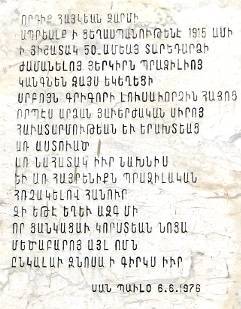 ՈՐԴԻՔ ՀԱՅԿԵԱՆ ԶԱՐՄԻ
ԱՊՐԵԱԼՔ Ի ՑԵՂԱՍՊԱՆՈՒԹԵՆԷ 1915 ԱՄԻ
Ի ՅԻՇԱՏԱԿ 50_ԱՄԵԱՅ ՏԱՐԵԴԱՐՁԻ
ԺԱՄԱՆԵԼՈՅ ՅԵՐԿԻՐՆ ՊՐԱԶԻԼԻՈՅ
ԿԱՆԳՆԵՆ ԶԱՅՍ ԵԿԵՂԵՑԻ
ՍՐԲՈՅՆ ԳՐԻԳՈՐԻ ԼՈՒՍԱՒՈՐՉԻՆ ՀԱՅՈՑ
ՈՐՊԷՍ ԱՐՁԱՆ ՅԱՒԵՐԺԱԿԱՆ ՍԻՐՈՅ
ՀԱՒԱՏԱՐՄՈՒԹԵԱՆ ԵՒ ԵՐԱԽՏԵԱՑ
ԱՌ ԱՍՏՈՒԱԾ
ԱՌ ՆԱՀԱՏԱԿ ԻՒՐ ՆԱԽՆԻՍ
ԵՒ ԱՌ ՀԱՅՐԵՆԻՔՆ ՊՐԱԶԻԼԱԿԱՆ
ՀՌՉԱԿԵԼՈՎ ՀԱՆՈՒՐ
ԶԻ ԵԹԷ ԵՂԵՒ ԱԶԳ ՄԻ
ՈՐ ՑԱՆԿԱՑԱՒ ԿՈՐՍՏԵԱՆ ՆՈՑԱ
ՄԵԾԱԲԱՐՈՅ ԱՅԼ ՈՄՆ
ԸՆԿԱԼԱՒ ԶՆՈՍԱ Ի ԳԻՐԿՍ ԻՒՐ
ՍԱՆ ՊԱՒԼՕ 6.6.1976